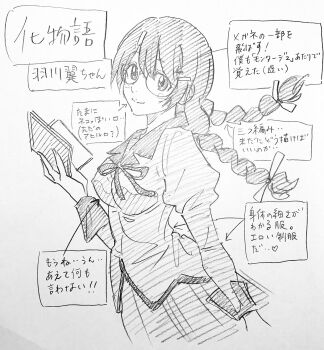 化物語
羽川翼ちゃん
メガネの一部を
飛ばす！
僕も"モンタージュ"あたりで
覚えた（嘘い）
たまに
ネコっぽい口…
三つ編み…
まだどう描けば
いいのか…
身体の細さが
わかる服。
エロい制服
だ…♡
もうね…うん…
あえて何も
言わない!!